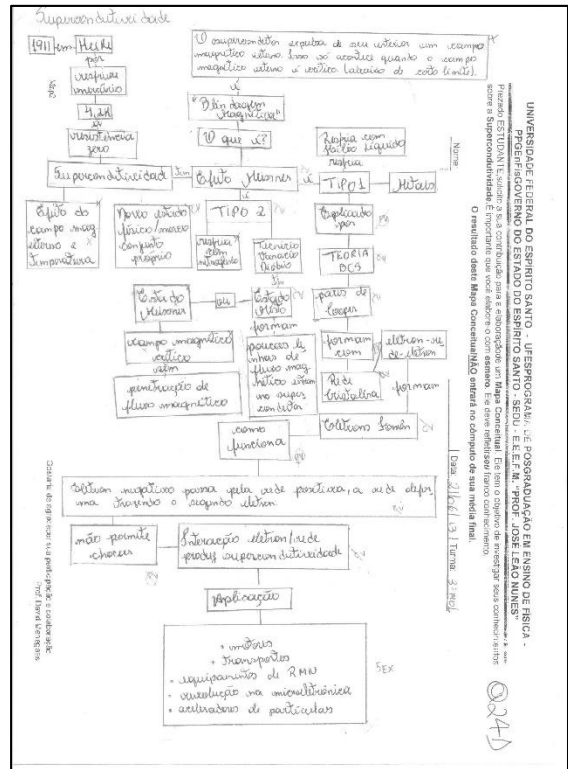 Supercondutividade
1911 em Heike
por
resfriar
mercúrio
4,2K
resistência
zero
O supercondutor expulsa de seu interior um campo
magnético externo. Isso só acontece quando o campo
magnético externo é crítico (abaixo de certo limite).
é
"Blindagem
Magnética"
O que é?
Resfria com
Hélio Líquido
resfria
Supercondutividade
Tem
Efeito Meissner
é
TIPO 1
Metais
Efeito do
campo mag
externo e
Temperatura
Novo estado
físico/
conjunto
próprio
TIPO 2
resfria
com
nitrogênio
Tecnécio
Vanádio
Nióbio
Explicado
por
TEORIA
BCS
pares de
Cooper
Estado
Meissner
ou
Estado
Misto
campo magnético
crítico
sem
penetração de
fluxo magnético
formam
poucas li
nhas de
fluxo mag
nético entram
no super
condutor
formam
com
eletron-re
de-eletron
Rede
Cristalina
formam
como
funciona
Elétron negativos passa pela rede positiva, a rede defor
ma trazendo o segundo elétron.
não permite
chocar
Interação elétron/rede
produz supercondutividade
Aplicação
• motores
• transportes
• equipamentos de RMN
• revolução na microeletrônica
• aceleradores de partículas
5EX
UNIVERSIDADE FEDERAL DO ESPÍRITO SANTO - UFESPROGRAMA DE POSGRADUAÇÃO EM ENSINO DE FÍSICA -
PPGEnFisGOVERNO DO ESTADO DO ESPÍRITO SANTO - SEDU - E.E.E.F.M. "PROF. JOSÉ LEÃO NUNES"
Prezado ESTUDANTE,solicito a sua contribuição para a elaboraçãode um Mapa Conceitual. Ele tem o objetivo de investigar seus conhecimentos
sobre a Supercondutividade.É importante que você elabore-o com esmero. Ele deve refletirseu franco conhecimento.
O resultado deste Mapa ConceitualNÃO entrará no cômputo de sua média final.
Nome:
Data: | Turma:
Q24D
Gostaria de agradecer sua participação e colaboração.
Prof. David Menegassi